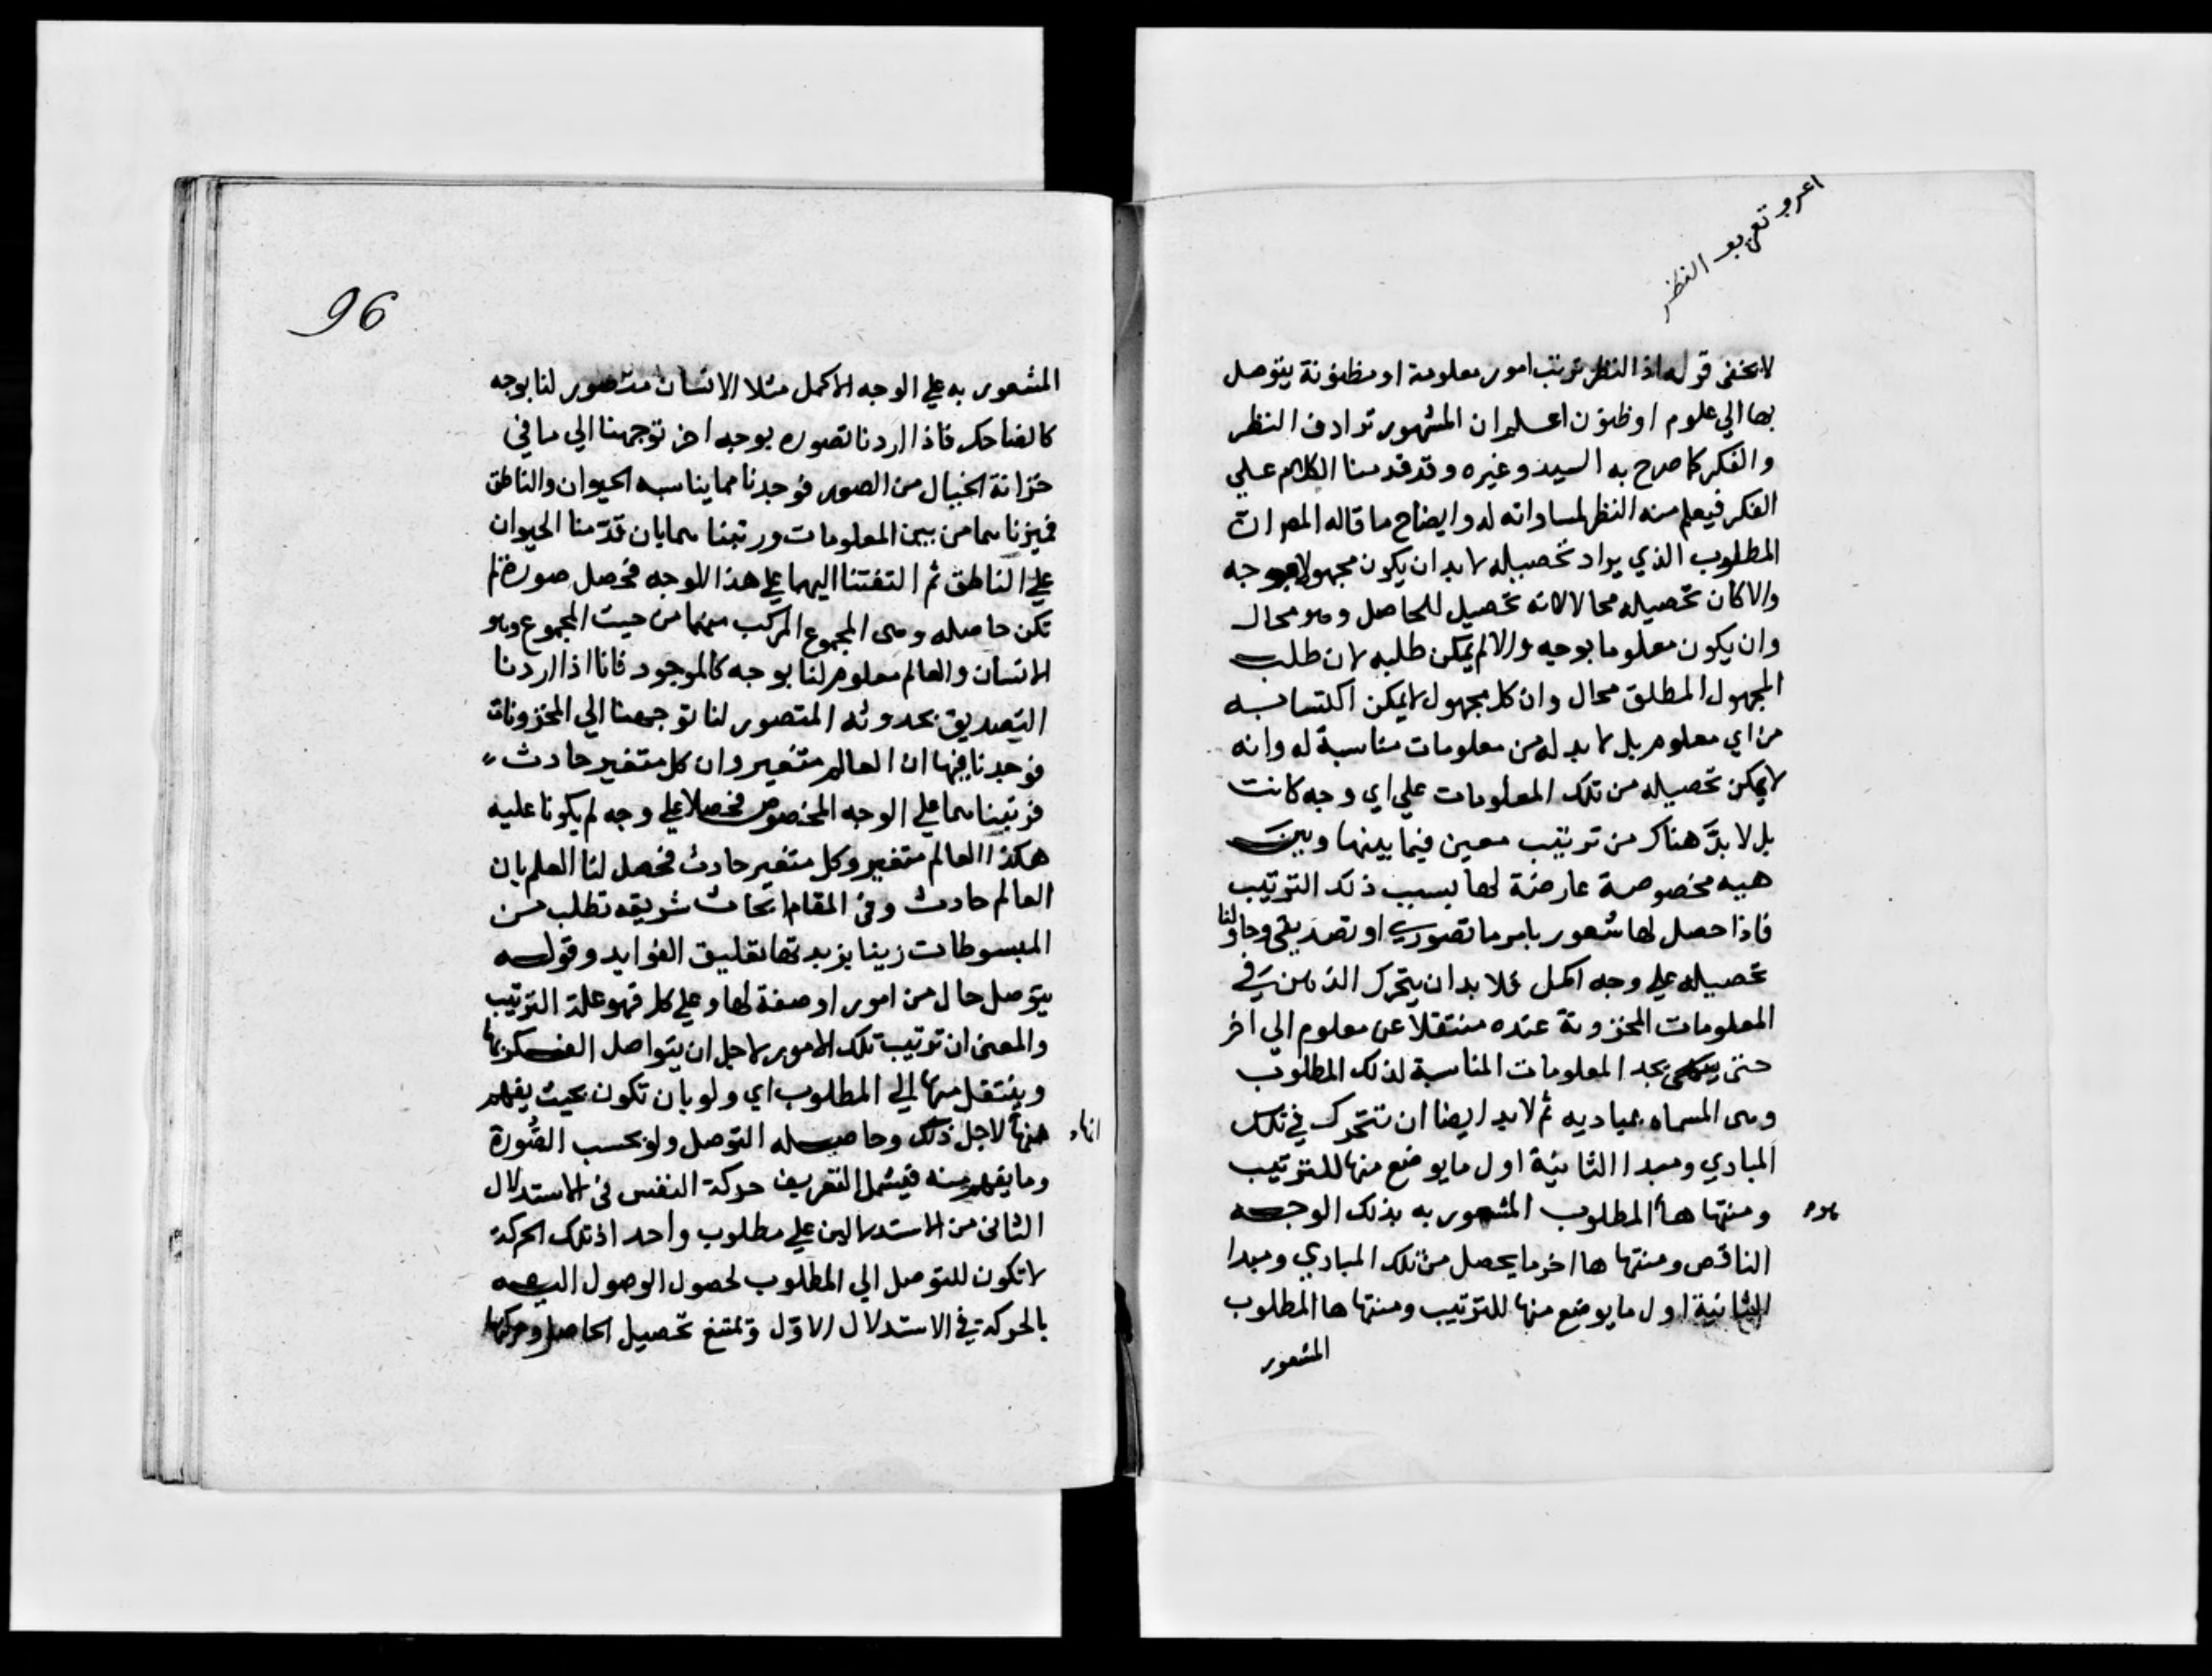 اعرو تعريف النظر
لا يخفى قوله اذ النظر ترتيب امور معلومة او مظنونة يتوصل
بها الي علوم او ظنون اعلم ان المشهور ترادف النظر
والفكر كما صرح به السيد وغيره وقد قدمنا الكلام علي
الفكر فيعلم منه النظر لمساواته له وايضاح ما قاله المص ان
المطلوب الذي يراد تحصيله لا بد ان يكون مجهولا بوجه
والا كان تحصيله محالا لانه تحصيل للحاصل وهو محال
وان يكون معلوما بوجه والا لم يمكن طلبه لان طلب
المجهول المطلق محال وان كل مجهول لا يمكن اكتسابه
من اي معلوم بل لا بد له من معلومات مناسبة له وانه
لا يمكن تحصيله من تلك المعلومات علي اي وجه كانت
بل لا بدَّ هناك من ترتيب معين فيما بينها وبين
هيه مخصوصة عارضة لها بسبب ذلك الترتيب
فاذا حصل لها شعور بامر ما تصوري او تصديقي وحاولنا
تحصيله علي وجه اكمل فلا بد ان يتحرك الذهن في
المعلومات المخزونة عنده منتقلا عن معلوم الي اخر
حتى يجد المعلومات المناسبة لذلك المطلوب
وهى المسماه بمباديه ثم لا بد ايضا ان تتحرك في تلك
المبادي ومبدا الثانية اول ما يوضع منها للترتيب
ومنتها ها المطلوب المشعور به بذلك الوجه
الناقص ومنتها ها اخر ما يحصل من تلك المبادي ومبدا
الثانية اول ما يوضع منها للترتيب ومنتها ها المطلوب
المشعور
96
المشعور به علي الوجه الاكمل مثلا الانسان متصور لنا بوجه
كالضاحك فاذا اردنا تصوره بوجه اخر توجهنا الي ما في
خزانة الخيال من الصور فوجدنا مما يناسبه الحيوان والناطق
فميزناهما من بين المعلومات ورتبناهما بان قدّمنا الحيوان
علي الناطق ثم التفتنا اليهما علي هذا الوجه فحصل صورة لم
تكن حاصله وهى المجموع المركب منهما من حيث المجموع وهو
الانسان والعالم معلوم لنا بوجه كالموجود فانا اذا اردنا
التصديق بحدوثه المتصور لنا توجهنا الي المخزونات
فوجدنا فيها ان العالم متغير وان كل متغير حادث
فرتبناهما علي الوجه المخصوص فحصلا علي وجه لم يكونا عليه
هكذا العالم متغير وكل متغير حادث فحصل لنا العلم بان
العالم حادث وفى المقام ابحاث شريفه تطلب من
المبسوطات زينا بزبدتها تعليق الفوايد وقوله
يتوصل حال من امور او صفة لها وعلي كل فهو علة الترتيب
والمعنى ان ترتيب تلك الامور لاجل ان يتواصل الفكر بها
وينتقل منها الي المطلوب اي ولو بان تكون بحيث يفهم
انها
منها لاجل ذلك وحاصله التوصل ولو بحسب الصُّورة
وما يفهم منه فيشمل التعريف حركة النفس فى الاستدلال
الثانى من الاستدلالين علي مطلوب واحد اذ تلك الحركة
لا تكون للتوصل الي المطلوب لحصول الوصول اليه
بالحركة في الاستدلال الاوّل ويمتنع تحصيل الحاصل وحركتها